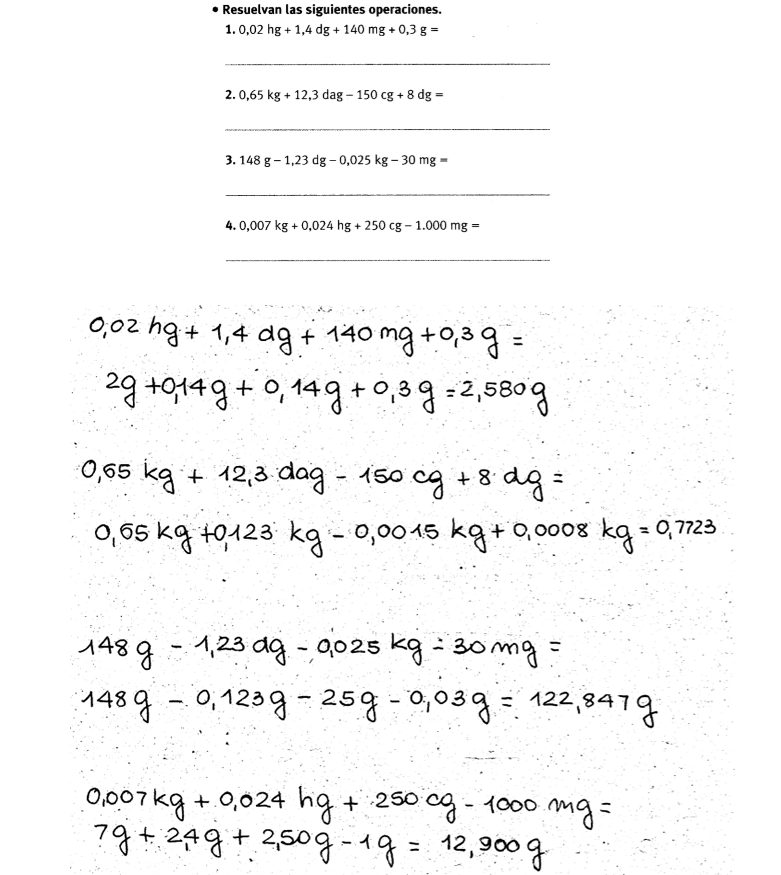 • Resuelvan las siguientes operaciones.
1. 0,02 hg + 1,4 dg + 140 mg + 0,3 g =
2. 0,65 kg + 12,3 dag – 150 cg + 8 dg =
3. 148 g – 1,23 dg – 0,025 kg – 30 mg =
4. 0,007 kg + 0,024 hg + 250 cg – 1.000 mg =
0,02 hg + 1,4 dg + 140 mg + 0,3 g =
2g + 0,14g + 0,14g + 0,3 g = 2,580g
0,65 kg + 12,3 dag - 150 cg + 8 dg =
0,65 kg + 0,123 kg - 0,0015 kg + 0,0008 kg = 0,7723
148 g - 1,23 dg - 0,025 kg - 30 mg =
148g - 0,123g - 25g - 0,03g = 122,847g
0,007 kg + 0,024 hg + 250 cg - 1000 mg =
7g + 2,4g + 2,50g - 1g = 12,900g